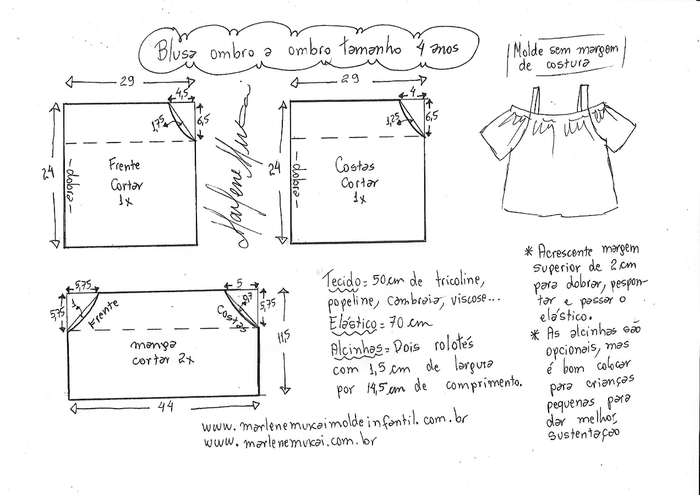 Blusa ombro a ombro tamanho 4 anos
Molde sem margem
de costura
29
4,5
1,75
6,5
24
-dobra-
Frente
Cortar
1x
Marlene Mukai
29
4
1,25
6,5
24
-dobra-
Costas
Cortar
1x
5,75
5,75
1
Frente
5
0,7
5,75
Costas
manga
cortar 2x
11,5
44
Tecido = 50cm de tricoline,
popeline, cambraia, viscose...
Elástico = 70 cm
Alcinhas = Dois rolotês
com 1,5 cm de largura
por 14,5 cm de comprimento.
* Acrescente margem
superior de 2 cm
para dobrar, pespon-
tar e passar o
elástico.
* As alcinhas são
opcionais, mas
é bom colocar
para crianças
pequenas para
dar melhor
sustentação
www.marlenemukaimoldeinfantil.com.br
www.marlenemukai.com.br